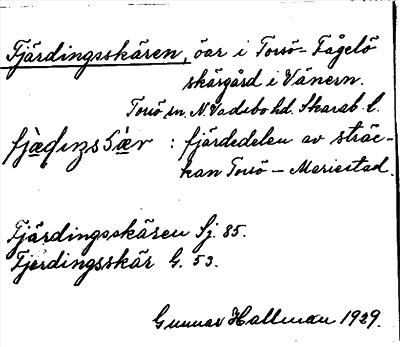 Fjärdingsskären, öar i Torsö-Fågelö
skärgård i Vänern.
Torsö sn. N. Vadsbo hd. Skarab. l.
: fjärdedelen av sträc-
kan Torsö – Mariestad.
Fjärdingsskären Sj. 85.
Fjerdingsskär G. 53.
Gunnar Hallman 1929.